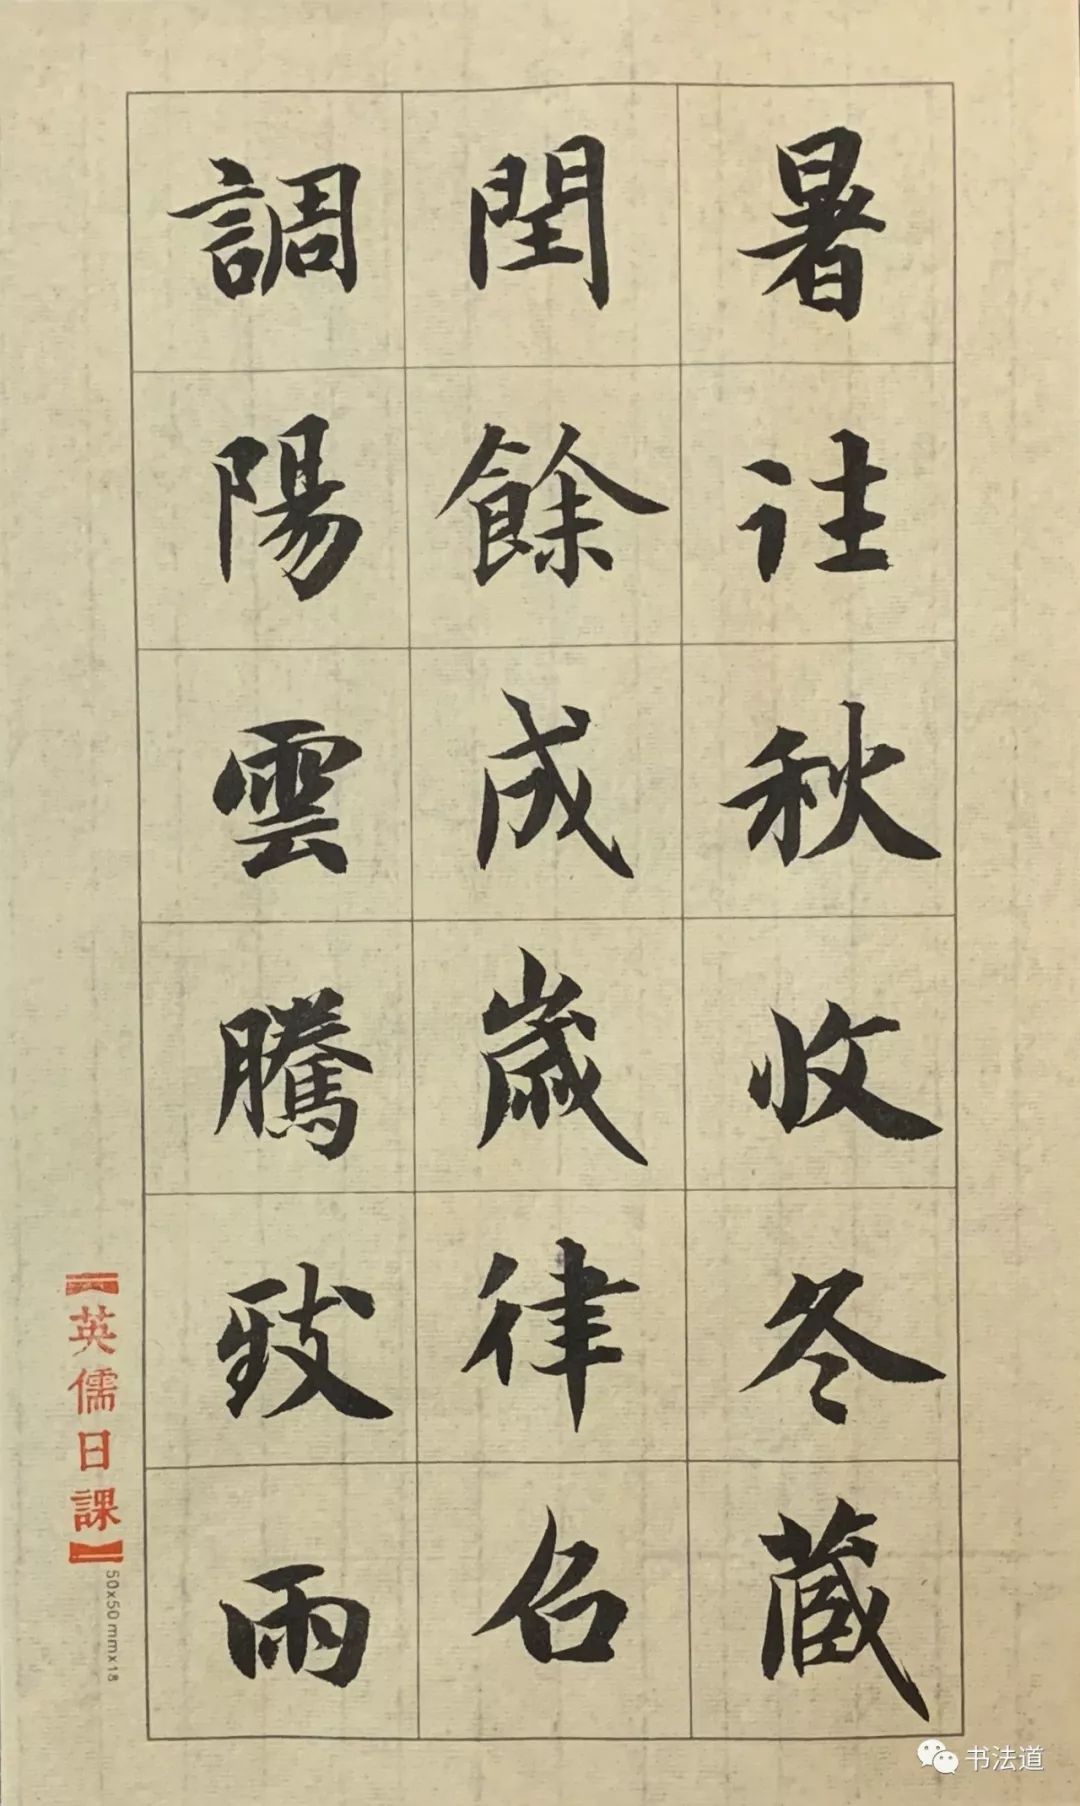 暑往秋收冬藏
閏餘成歲律召
調陽雲騰致雨
【英儒日課】
50x50mmx18
书法道